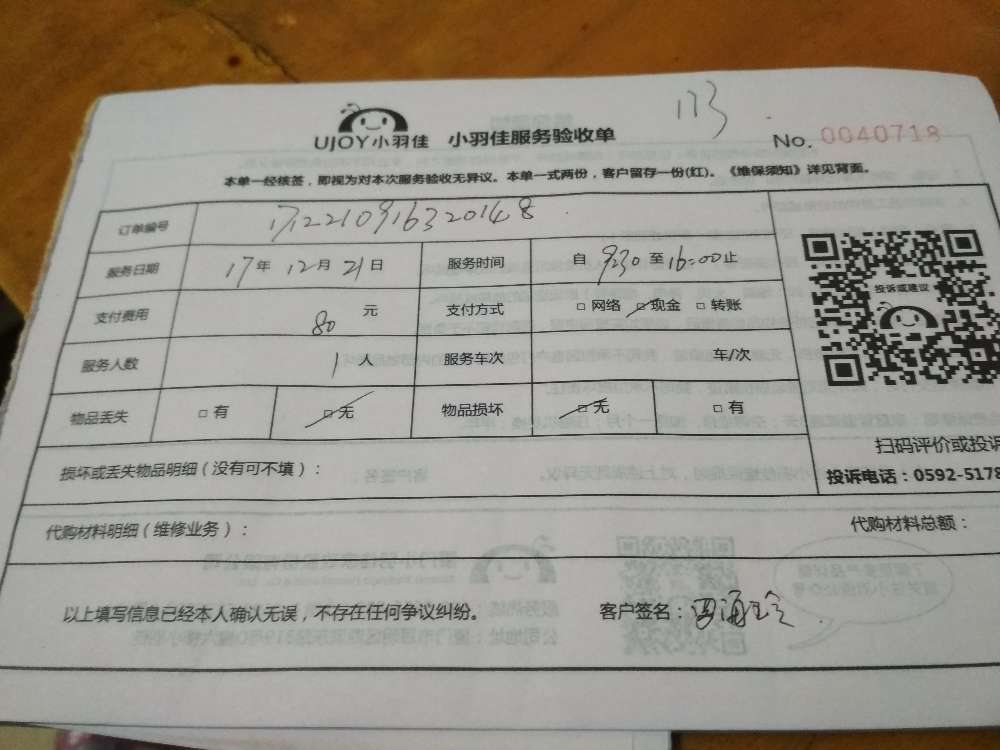 173
UJOY小羽佳 小羽佳服务验收单
No. 0040718
本单一经核签，即视为对本次服务验收无异议。本单一式两份，客户留存一份(红)。《维保须知》详见背面。
订单编号 1712210916320148
服务日期 17年 12月 21日 服务时间 自 9:30 至 16:00 止
支付费用 80 元 支付方式 □ 网络 □ 现金 □ 转账
投诉或建议
服务人数 1 人 服务车次 车/次
物品丢失 □ 有 □ 无 物品损坏 □ 无 □ 有
扫码评价或投诉
损坏或丢失物品明细（没有可不填）：
投诉电话：0592-5178
代购材料明细（维修业务）：
代购材料总额：
以上填写信息已经本人确认无误，不存在任何争议纠纷。
客户签名：